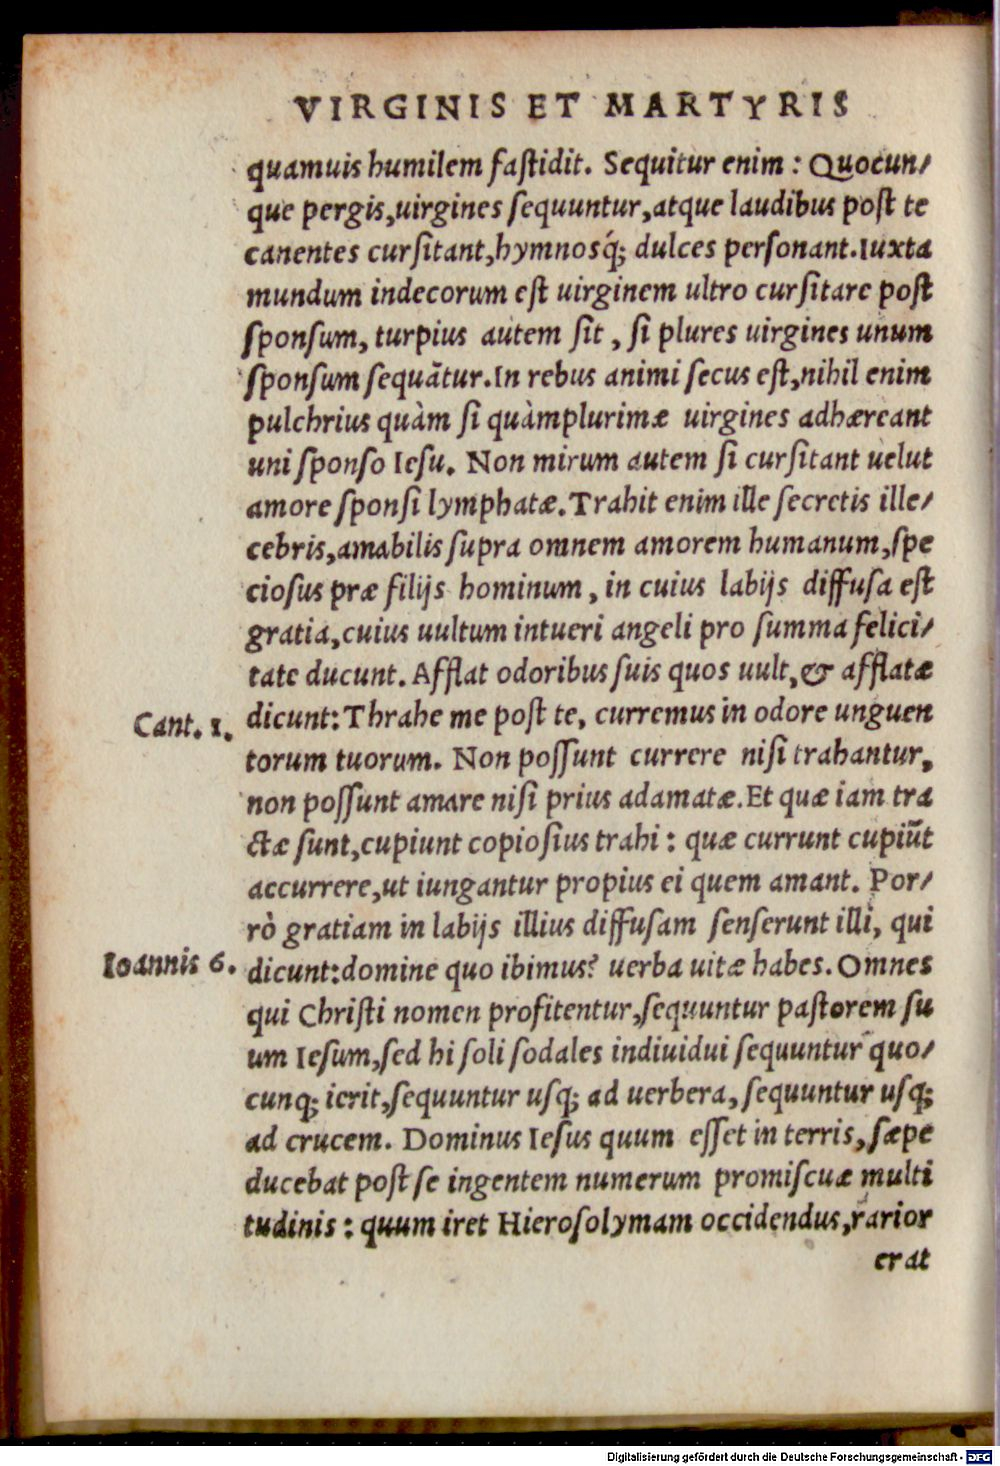 VIRGINIS ET MARTYRIS
quamuis humilem faſtidit. Sequitur enim: Quocun/
que pergis,uirgines ſequuntur,atque laudibus poſt te
canentes curſitant,hymnosq́; dulces perſonant.Iuxta
mundum indecorum eſt uirginem ultro curſitare poſt
ſponſum, turpius autem ſit, ſi plures uirgines unum
ſponſum ſequãtur.In rebus animi ſecus eſt,nihil enim
pulchrius quàm ſi quàmplurimæ uirgines adhæreant
uni ſponſo Ieſu. Non mirum autem ſi curſitant uelut
amore ſponſi lymphatæ.Trahit enim ille ſecretis ille/
cebris,amabilis ſupra omnem amorem humanum,ſpe
cioſus præ filijs hominum, in cuius labijs diffuſa eſt
gratia,cuius uultum intueri angeli pro ſumma felici/
tate ducunt. Afflat odoribus ſuis quos uult,& afflatæ
Cant. 1. dicunt:Thrahe me poſt te, curremus in odore unguen
torum tuorum. Non poſſunt currere niſi trahantur,
non poſſunt amare niſi prius adamatæ.Et quæ iam tra
ctæ ſunt,cupiunt copioſius trahi: quæ currunt cupiũt
accurrere,ut iungantur propius ei quem amant. Por/
rò gratiam in labijs illius diffuſam ſenſerunt illi, qui
Ioannis 6. dicunt:domine quo ibimus? uerba uitæ habes.Omnes
qui Chriſti nomen profitentur,ſequuntur paſtorem ſu
um Ieſum,ſed hi ſoli ſodales indiuidui ſequuntur quo/
cunq; ierit,ſequuntur uſq; ad uerbera, ſequuntur uſq;
ad crucem. Dominus Ieſus quum eſſet in terris,ſæpe
ducebat poſt ſe ingentem numerum promiſcuæ multi
tudinis: quum iret Hieroſolymam occidendus,rarior
erat
Digitalisierung gefördert durch die Deutsche Forschungsgemeinschaft - DFG